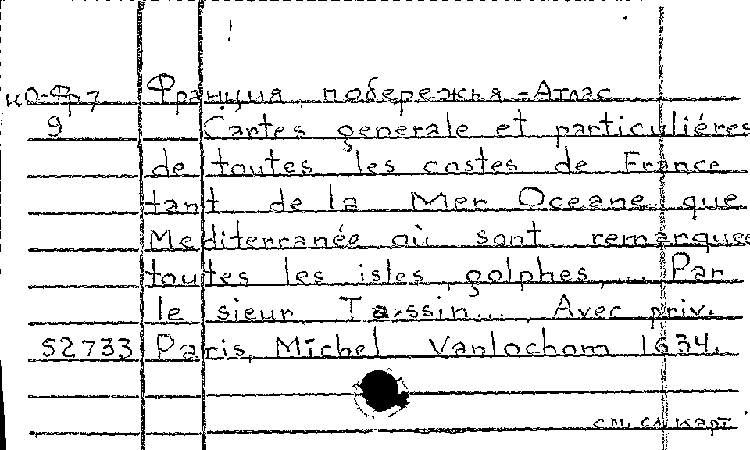 КО-Фр7 Франция, побережья - Атлас
9 Cartes generale et particuliéres
de toutes les costes de France
tant de la Mer Oceane que
Mediterranée où sont remarquee
toutes les isles, golphes, ... Par
le sieur Tassin... Avec priv.
52733 Paris, Michel Vanlochom 1634.
см. сл. карт.